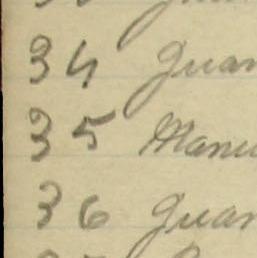 34 Juan
35 Manu
36 Juan